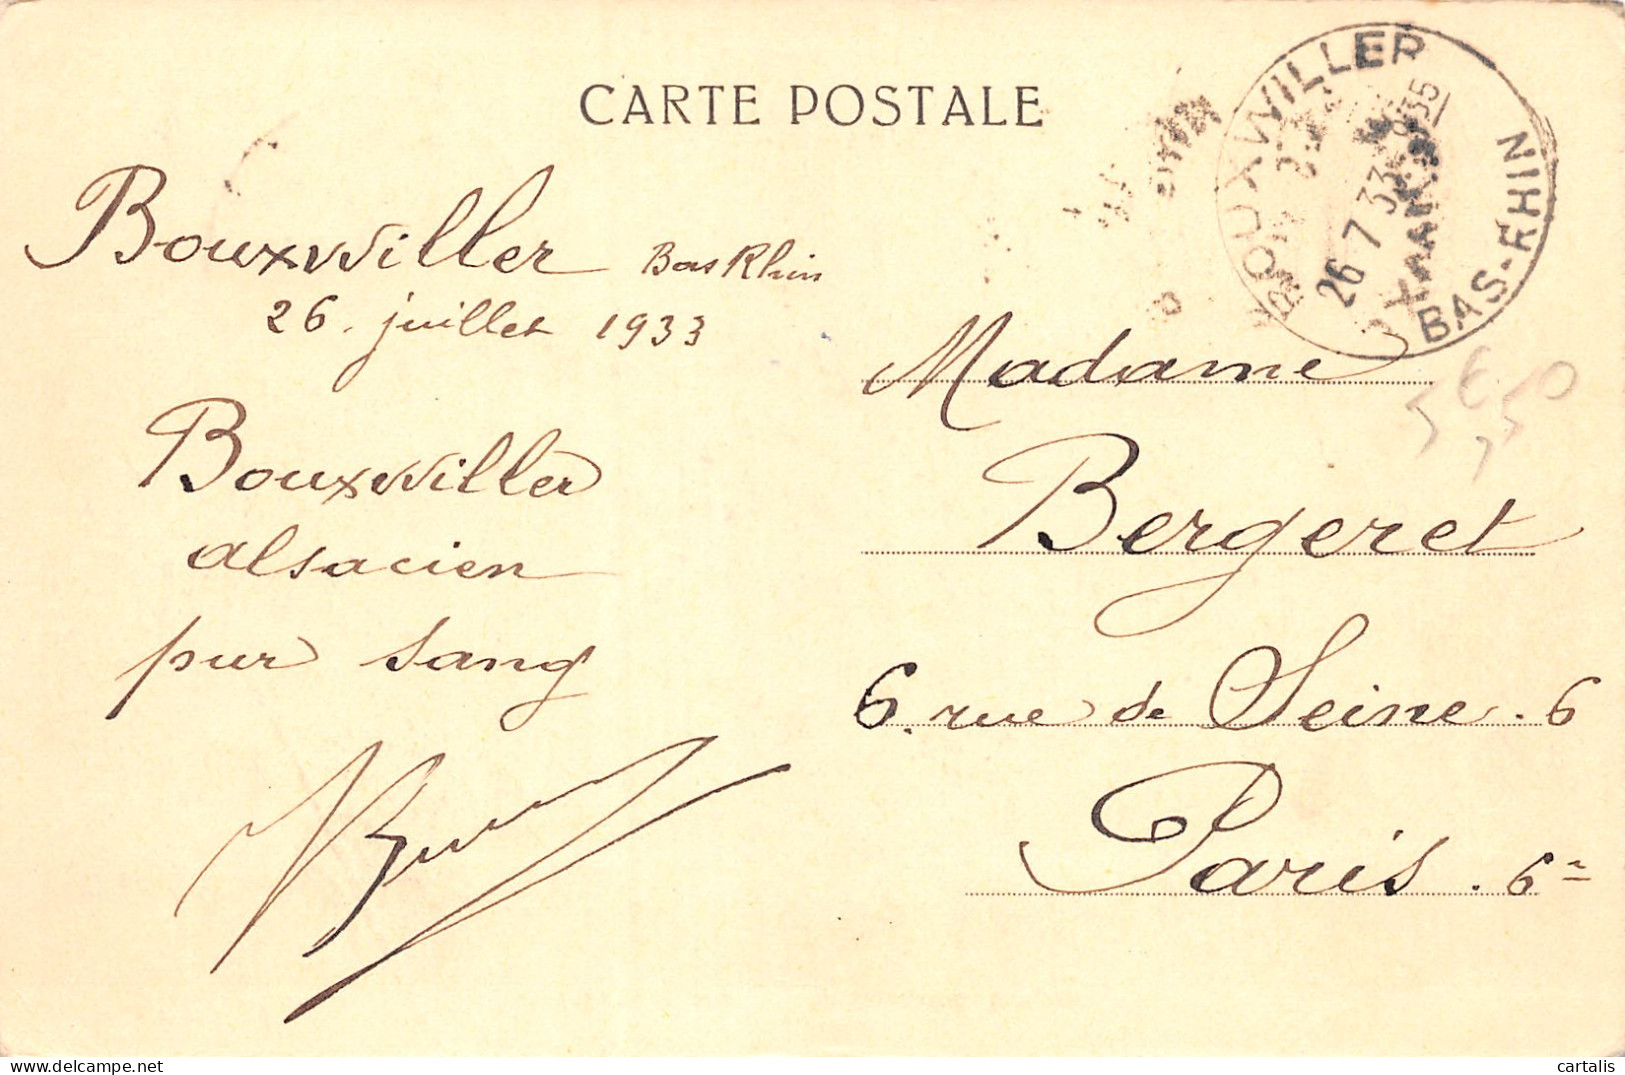 CARTE POSTALE
BOUXWILLER
26 7 33
BAS-RHIN
Bouxwiller Bas Rhin
26. juillet 1933
Bouxwiller
alsacien
pur sang
Madame
Bergeret
6. rue de Seine. 6
Paris. 6e
5,50
€
cartalis